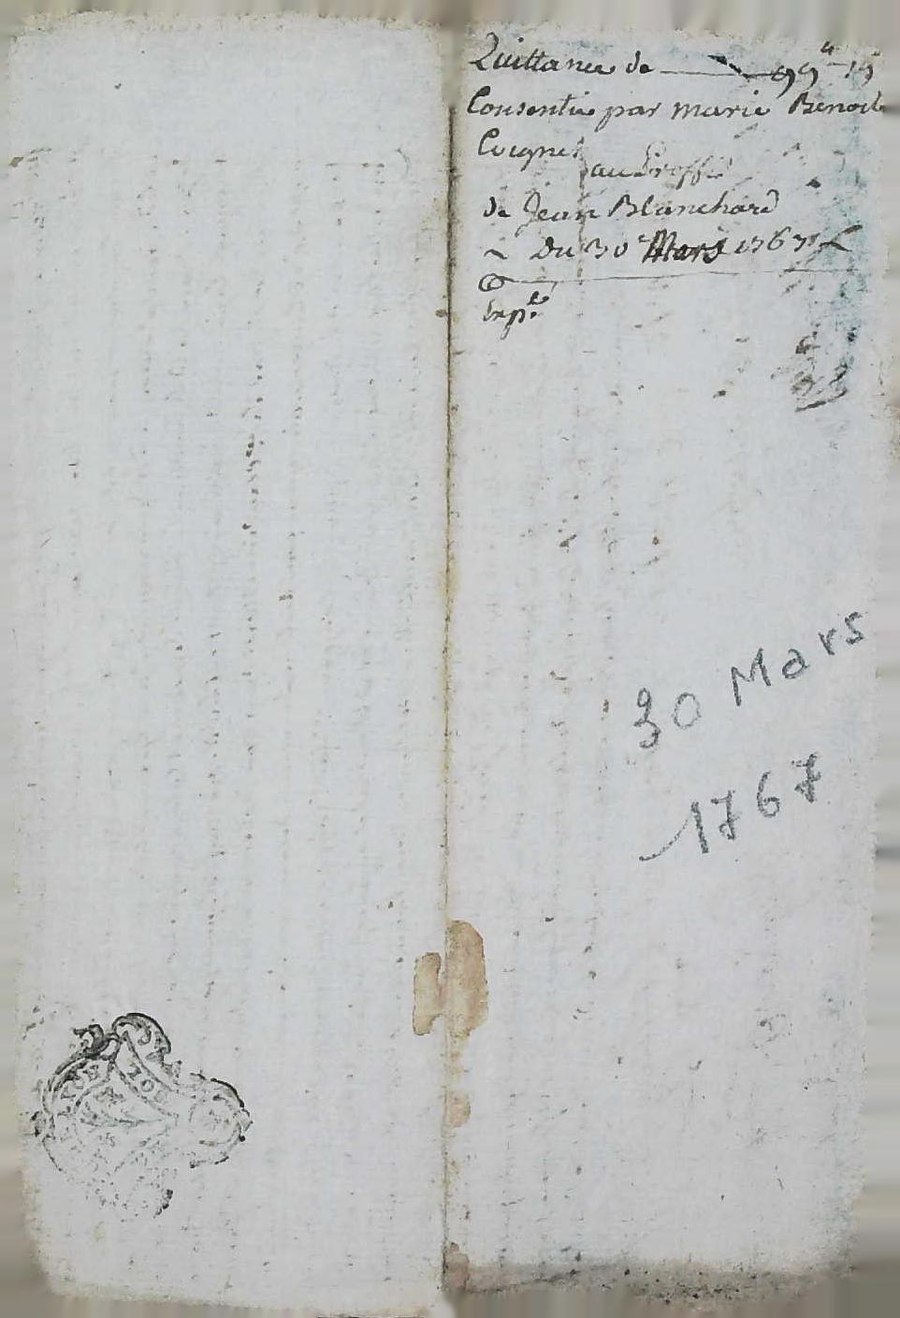 Quittance de 99# 19s
Consentie par marie Benoit
Coigne
au proffit
de Jean Blanchard
Du 30e Mars 1767
Exp.ée
30 Mars
1767